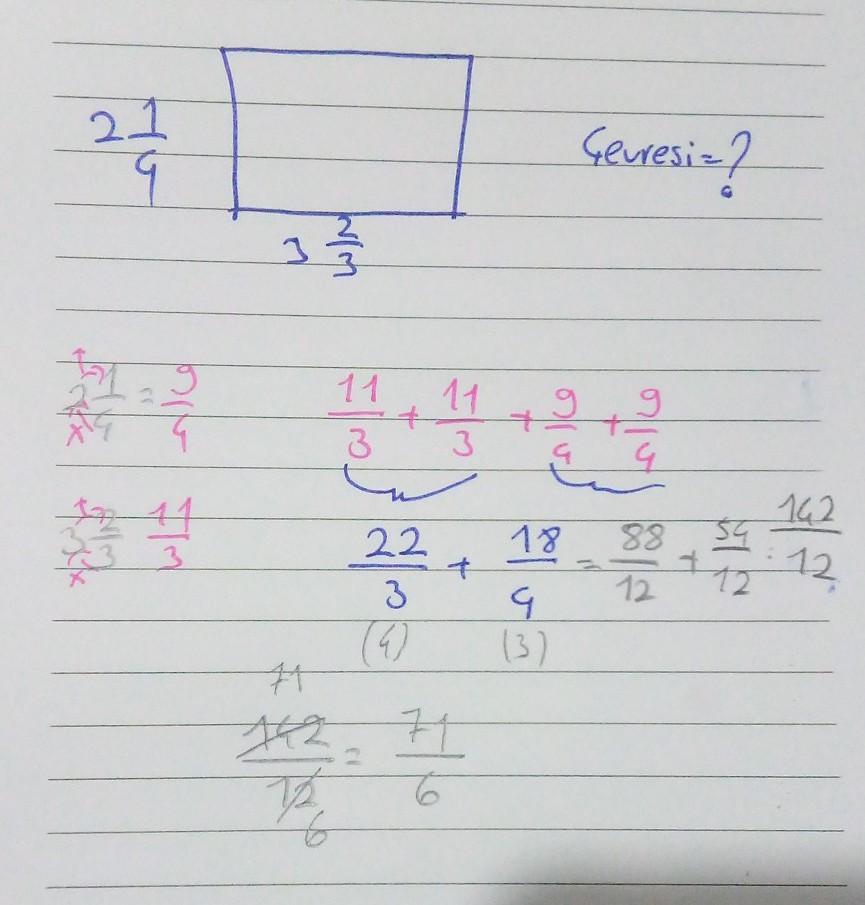 2 1/4
Çevresi=?
3 2/3
2 1/4 = 9/4
11/3 + 11/3 + 9/4 + 9/4
3 2/3 11/3
22/3 + 18/4 = 88/12 + 54/12 : 142/12
(4) (3)
71
142/12 = 71/6
6